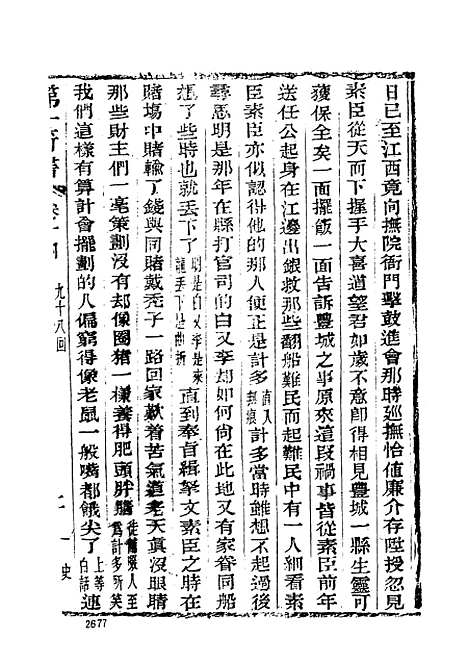 日已至江西竟向撫院衙門擊鼓進會那時廵撫恰值廉介存陞授忽見
素臣從天而下握手大喜道望君如歲不意卽得相見豐城一縣生靈可
獲保全矣一面擺飯一面告訴豐城之事原來這段禍事皆從素臣前年
送任公起身在江邊出銀救那些翻船難民而起難民中有一人細看素
臣素臣亦似認得他的那人便正是計多直入無痕計多當時雖想不起過後
尋思明是那年在縣打官司的白又李却如何尙在此地又有家眷同船
想了些時也就丟下了明是白又李是來讓丟下是曲折直到奉旨緝拏文素臣之時在
賭塲中賭輸了錢與同賭戴禿子一路回家歎着苦氣道老天眞沒眼睛
那些財主們一毫策劃沒有却像圈猪一樣養得肥頭胖腦徒備驟人至為計多所笑
我們這樣有算計會擺劃的人偏窮得像老鼠一般嘴都餓尖了上等白話連
第一奇書 卷十四 九十八回 一 史
2677